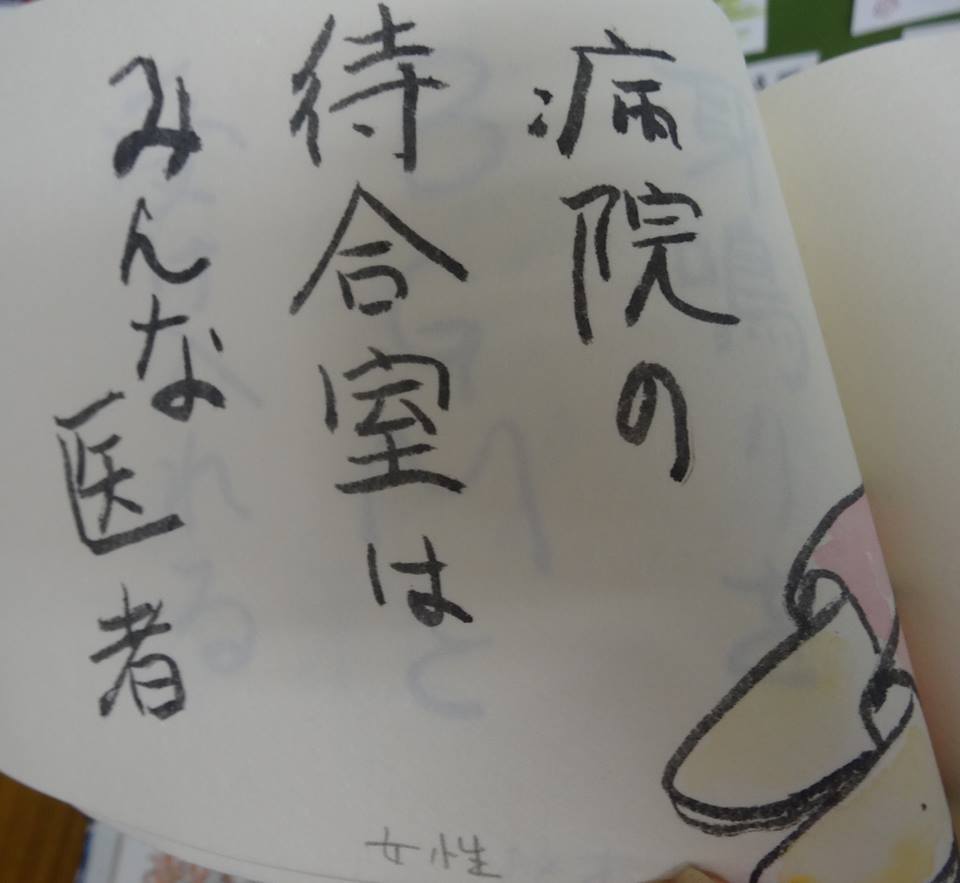 病院の
待合室は
みんな医者
女性